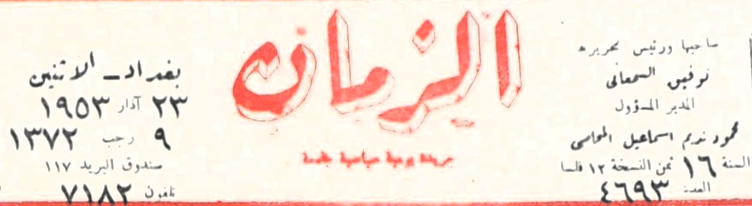 صاحبها ورئيس تحريرها
توفيق السمعاني
المدير المسؤول
محمود نديم اسماعيل المحامي
السنة ١٦ ثمن النسخة ١٢ فلسا
العدد ٤٦٩٣
الزمان
جريدة يومية سياسية عامة
بغداد - الاثنين
٢٣ آذار ١٩٥٣
٩ رجب ١٣٧٢
صندوق البريد ١١٧
تلفون ٧١٨٢